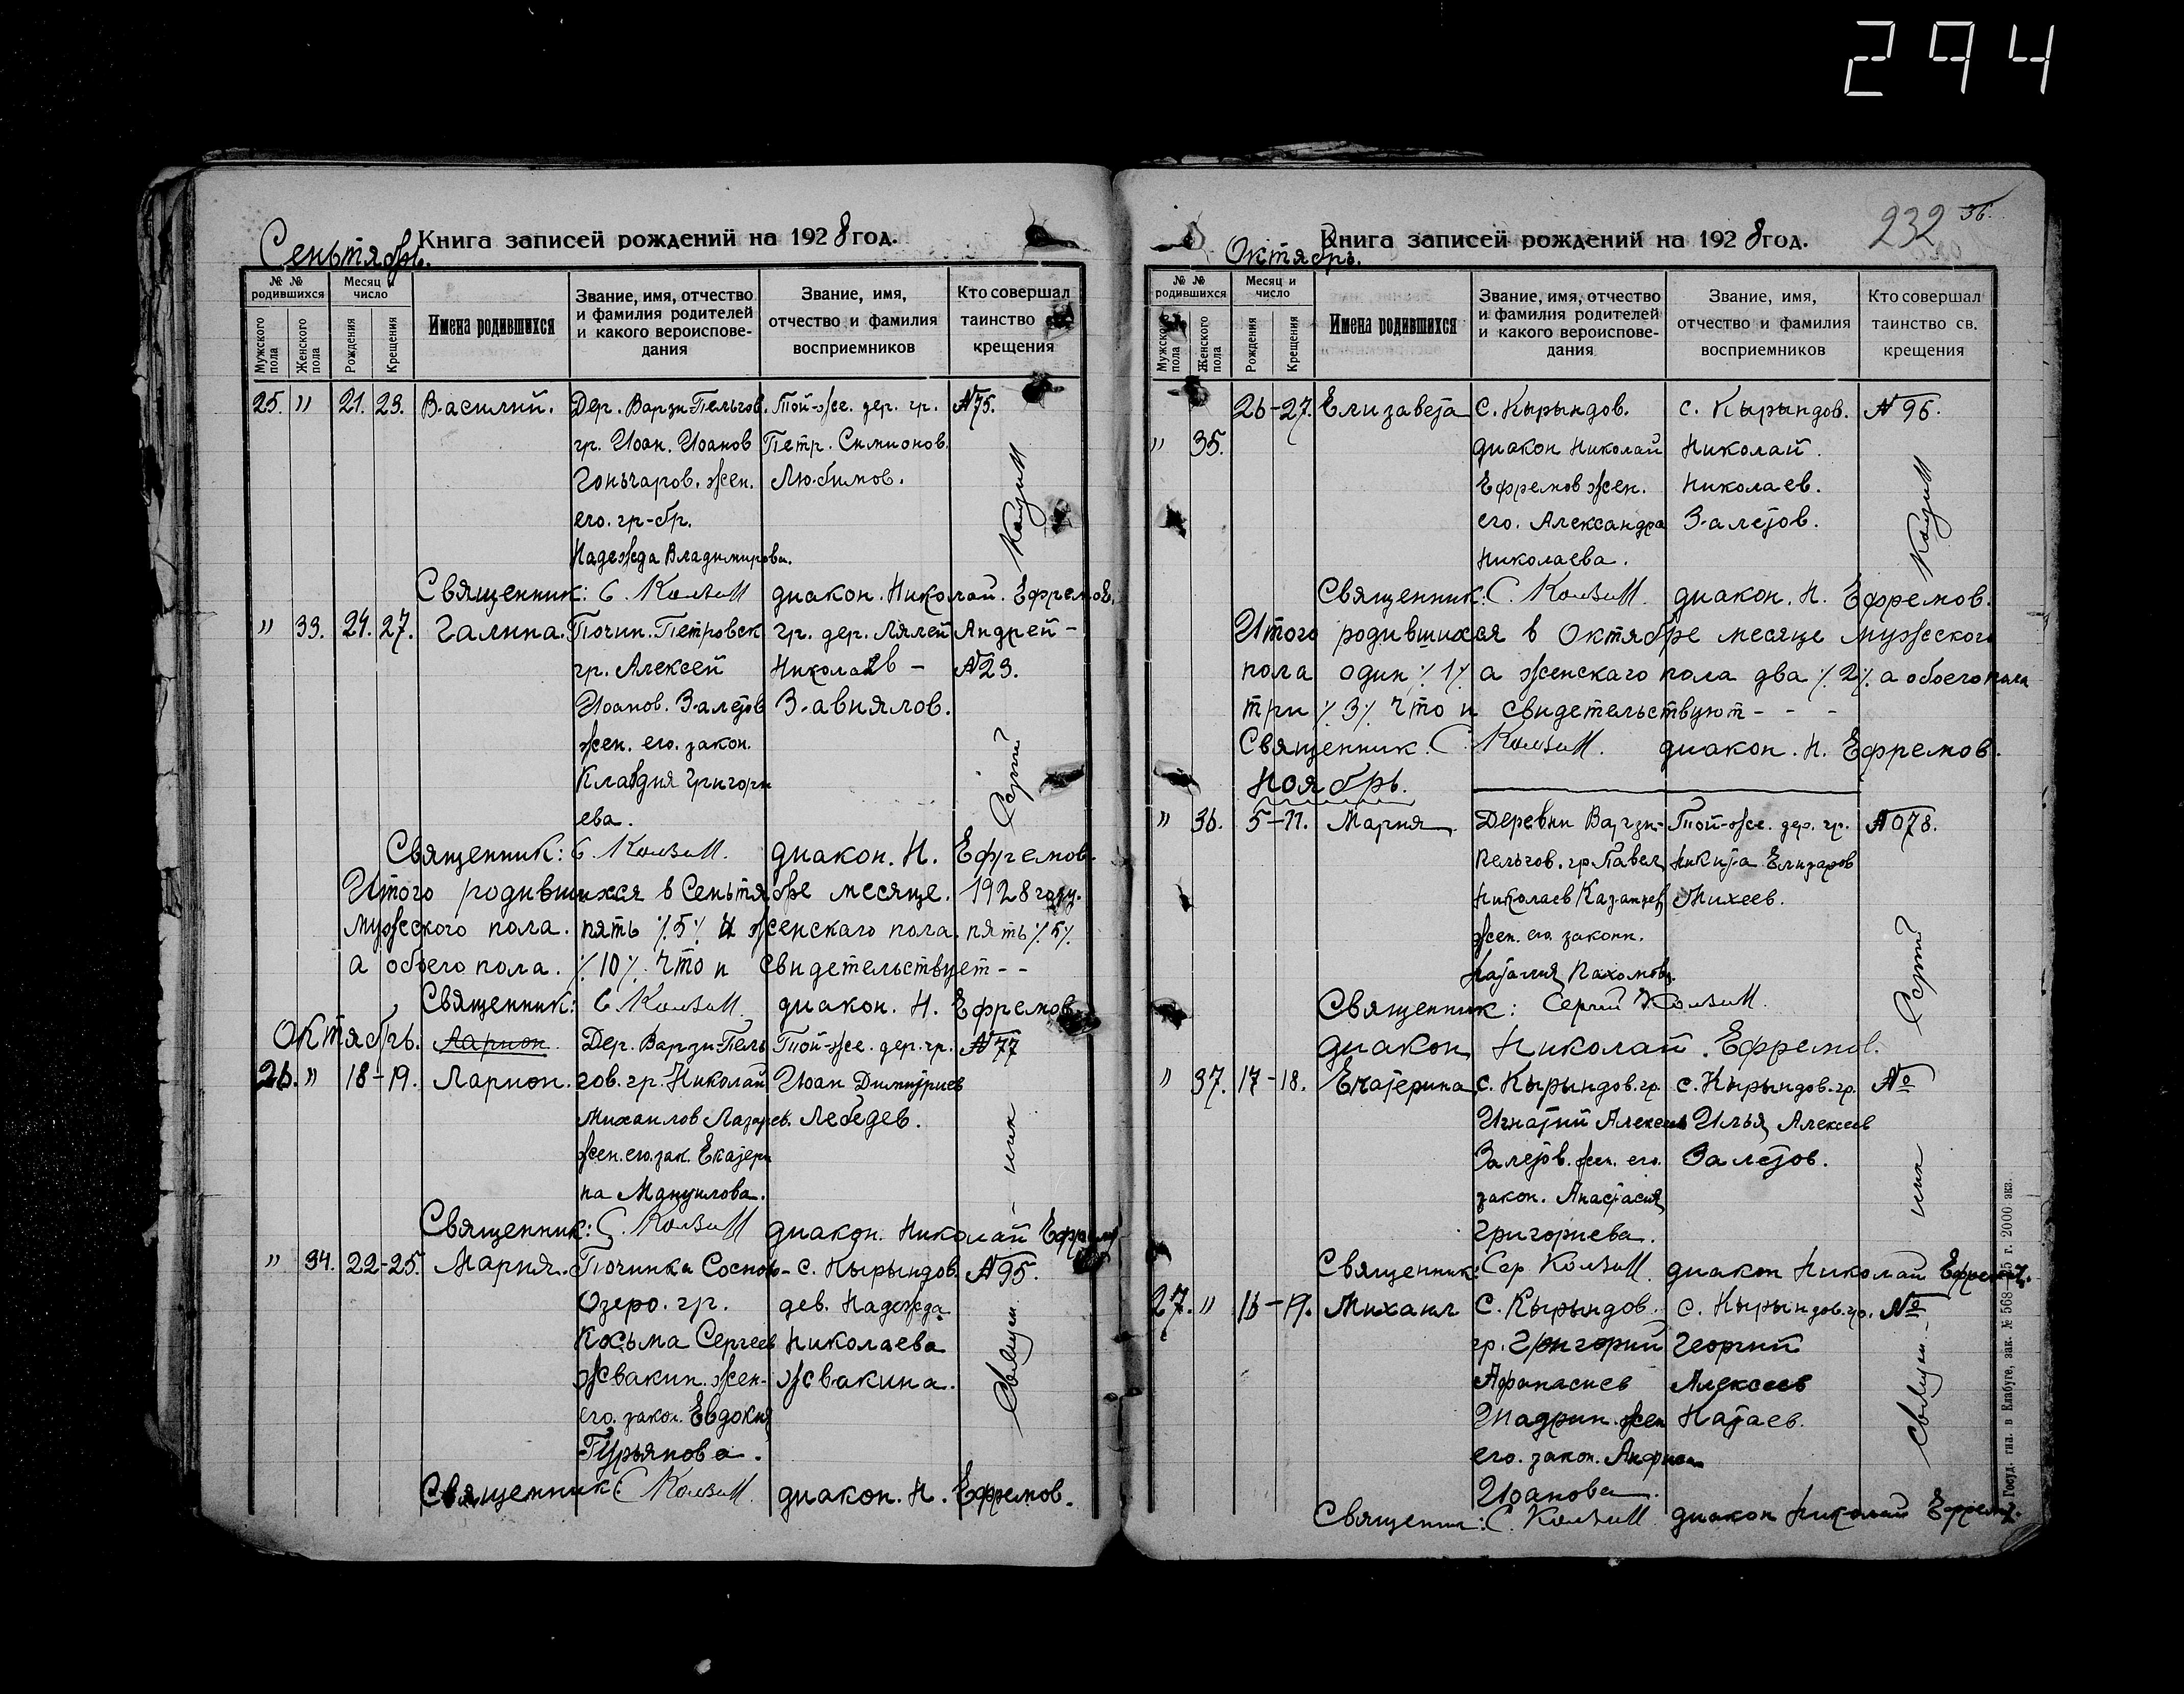 294
Книга записей рождений на 1928 год.
Сентябрь.
№ № родившихся
Мужского пола
Женского пола
Месяц и число
Рождения
Крещения
Имена родившихся
Звание, имя, отчество и фамилия родителей и какого вероиспове-дания
Звание, имя, отчество и фамилия восприемников
Кто совершал таинство крещения
25. " 21. 23. Василий. Дер. Варзи-Пельгов. Той-же. дер. гр. №75.
гр. Иоан. Иоанов Петр. Симионов.
Гоньчаров. жен. Любимов.
его. гр-бр.
Надежда Владимирова.
Священник: С. диакон. Николай. Ефремов.
" 33. 24. 27. Галина. Почин. Петровск гр. дер. Лялей Андрей -
гр. Алексей Николаев - №23.
Иоанов. Залетов Завиялов.
жен. его. закон.
Клавдия Григори
ева.
Священник: С. диакон. Н. Ефремов.
Итого родившихся в Сентябре месяце. 1928 году.
мужеского пола. пять ٪5٪ и женскаго пола. пять ٪5٪
а обоего пола. ٪10٪. Что и свидетельствует - -
Священник: С. диакон. Н. Ефремов.
Октябрь. Ларион Дер. Варзи-Пель Той-же. дер. гр. №77
26. " 18-19. Ларион. гов. гр. Николай Иоан Димитриев
Михаилов Лазарев. Лебедев.
жен. его. зак. Екатери
на Мануилова.
Священник: С. диакон. Николай Ефремов
" 34. 22-25. Мария. Починка Сосново- с. Кырындов. №95.
Озеро. гр. дев. Надежда
Косьма Сергеев Николаева
Жвакин. жен- Жвакина.
его. закон. Евдокия
Гурьянова.
Священник: С. диакон. Н. Ефремов.
Священ-
ник
Сергий
232
36.
Книга записей рождений на 1928 год.
Октябрь.
№ № родившихся
Мужского пола
Женского пола
Месяц и число
Рождения
Крещения
Имена родившихся
Звание, имя, отчество и фамилия родителей и какого вероиспове-дания
Звание, имя, отчество и фамилия восприемников
Кто совершал таинство св. крещения
26-27. Елизавета с. Кырындов. с. Кырындов. №96.
" 35. диакон Николай Николай.
Ефремов жен. Николаев.
его. Александра Залетов.
Николаева.
Священник: С. диакон. Н. Ефремов.
Итого родившихся в Октябре месяце мужеского
пола один ٪1٪ а женскаго пола два ٪2٪ а обоего пола
три ٪3٪ Что и свидетельствуют - - -
Священник. С. диакон. Н. Ефремов.
Ноябрь.
" 36. 5-11. Мария. Деревни Варзи- Той-же. дер. гр. №078.
Пельгов. гр Павел Никита Елизаров
Николаев Казанцев Михеев.
жен. его законн.
Наталия Пахомова.
Священник: Сергий
диакон Николай. Ефремов.
" 37. 17-18. Екатерина с. Кырындов. гр. с. Кырындов. гр. №
Игнатий Алексеев Илья Алексеев
Залетов. жен. его. Залетов.
закон. Анастасия
Григориева.
Священник: Сер диакон Николай Ефремов.
27. " 16-19. Михаил с. Кырындов. с. Кырындов. гр. №
гр. Григорий Георгий
Афанасиев Алексеев
Шадрин. жен Натаев.
его. закон. Анфиса
Иоанова.
Священник: С. диакон Николай Ефремов.
Священ-
ник
Сергий
Госуд. тип. в Елабуге, зак. № 568—25 г. 2000 экз.